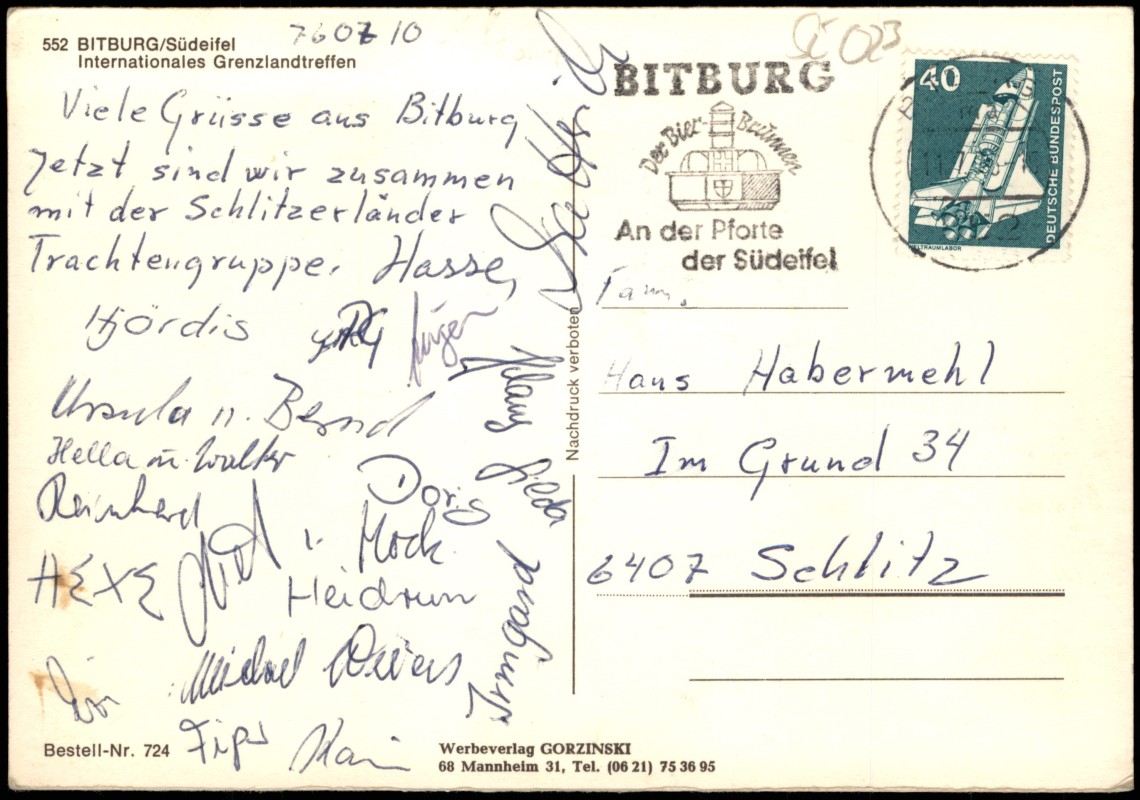 552 BITBURG/Südeifel
Internationales Grenzlandtreffen
760710
Viele Grüsse aus Bitburg
Jetzt sind wir zusammen
mit der Schlitzerländer
Trachtengruppe. Hasse,
Hjördis
Jürgen
Ursula u. Bernd
Hella u. Walter
Reinhard
Doris
Mock
HEXE
Heidrun
Michael
Klaus
Gilda
Irmgard
Bestell-Nr. 724
Werbeverlag GORZINSKI
68 Mannheim 31, Tel. (06 21) 75 36 95
Nachdruck verboten
BITBURG
Der Bier-Brunnen
An der Pforte
der Südeifel
023
40
DEUTSCHE BUNDESPOST
WELTRAUMLABOR
Fam.
Hans Habermehl
Im Grund 34
6407 Schlitz